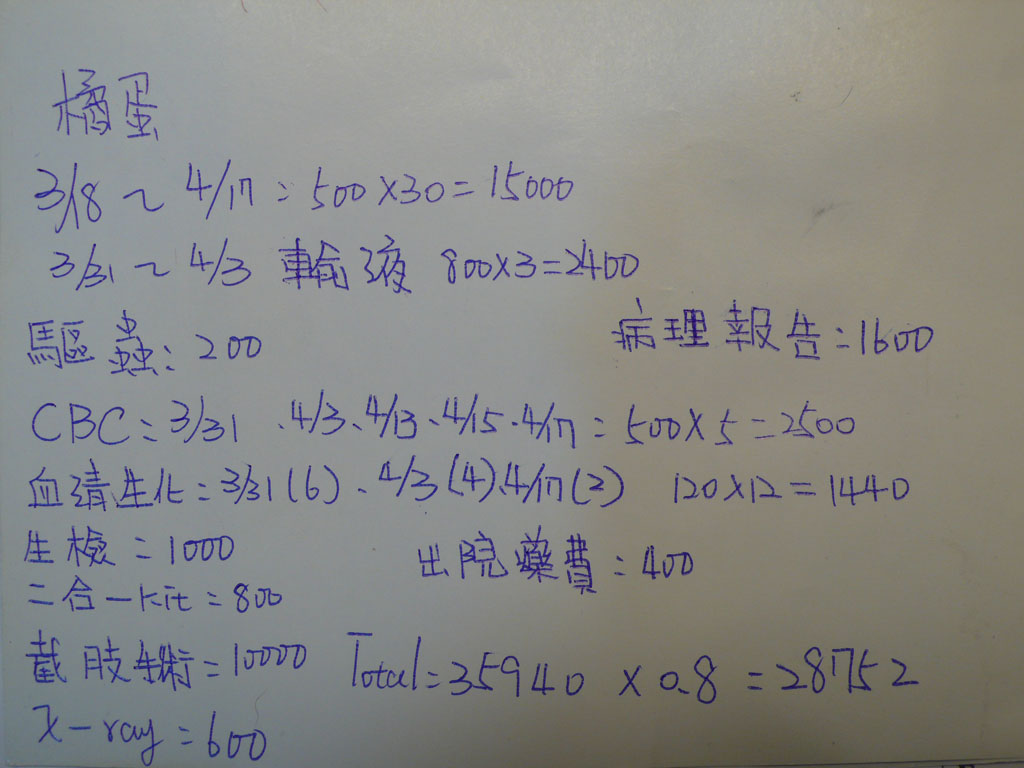 橘蛋
3/18 ~ 4/17 : 500 × 30 = 15000
3/31 ~ 4/3 輸液 800×3=2400
驅蟲: 200
病理報告:1600
CBC: 3/31 、4/3、4/13、4/15、4/17 = 500 × 5 = 2500
血清生化: 3/31(6)、4/3(4)、4/17(2) 120×12=1440
生檢 = 1000
出院藥費: 400
二合一Kit = 800
截肢手術=10000
Total=35940 × 0.8 = 28752
X-ray = 600